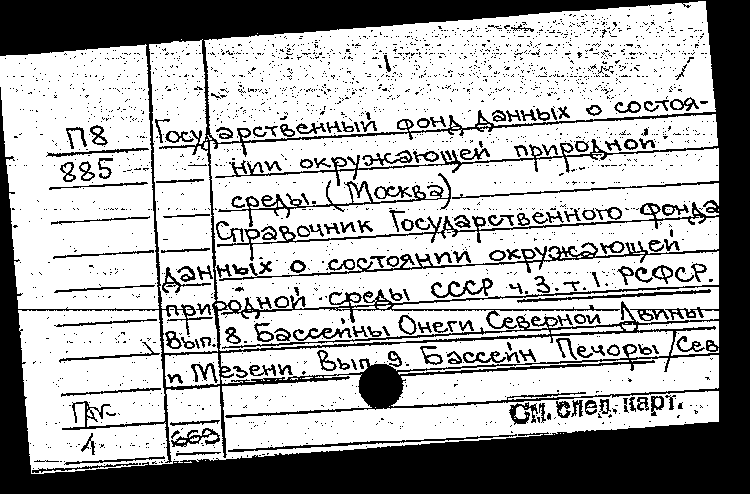 П8
885
Государственный фонд данных о состоя-
нии окружающей природной
среды. (Москва)
Справочник Государственного фонда
данных о состоянии окружающей
природной среды СССР ч.3.т.1. РСФСР.
Вып. 8. Бассейны Онеги, Северной Двины
и Мезени. Вып. 9. Бассейн Печоры /Сев
4
669
См. след. карт.